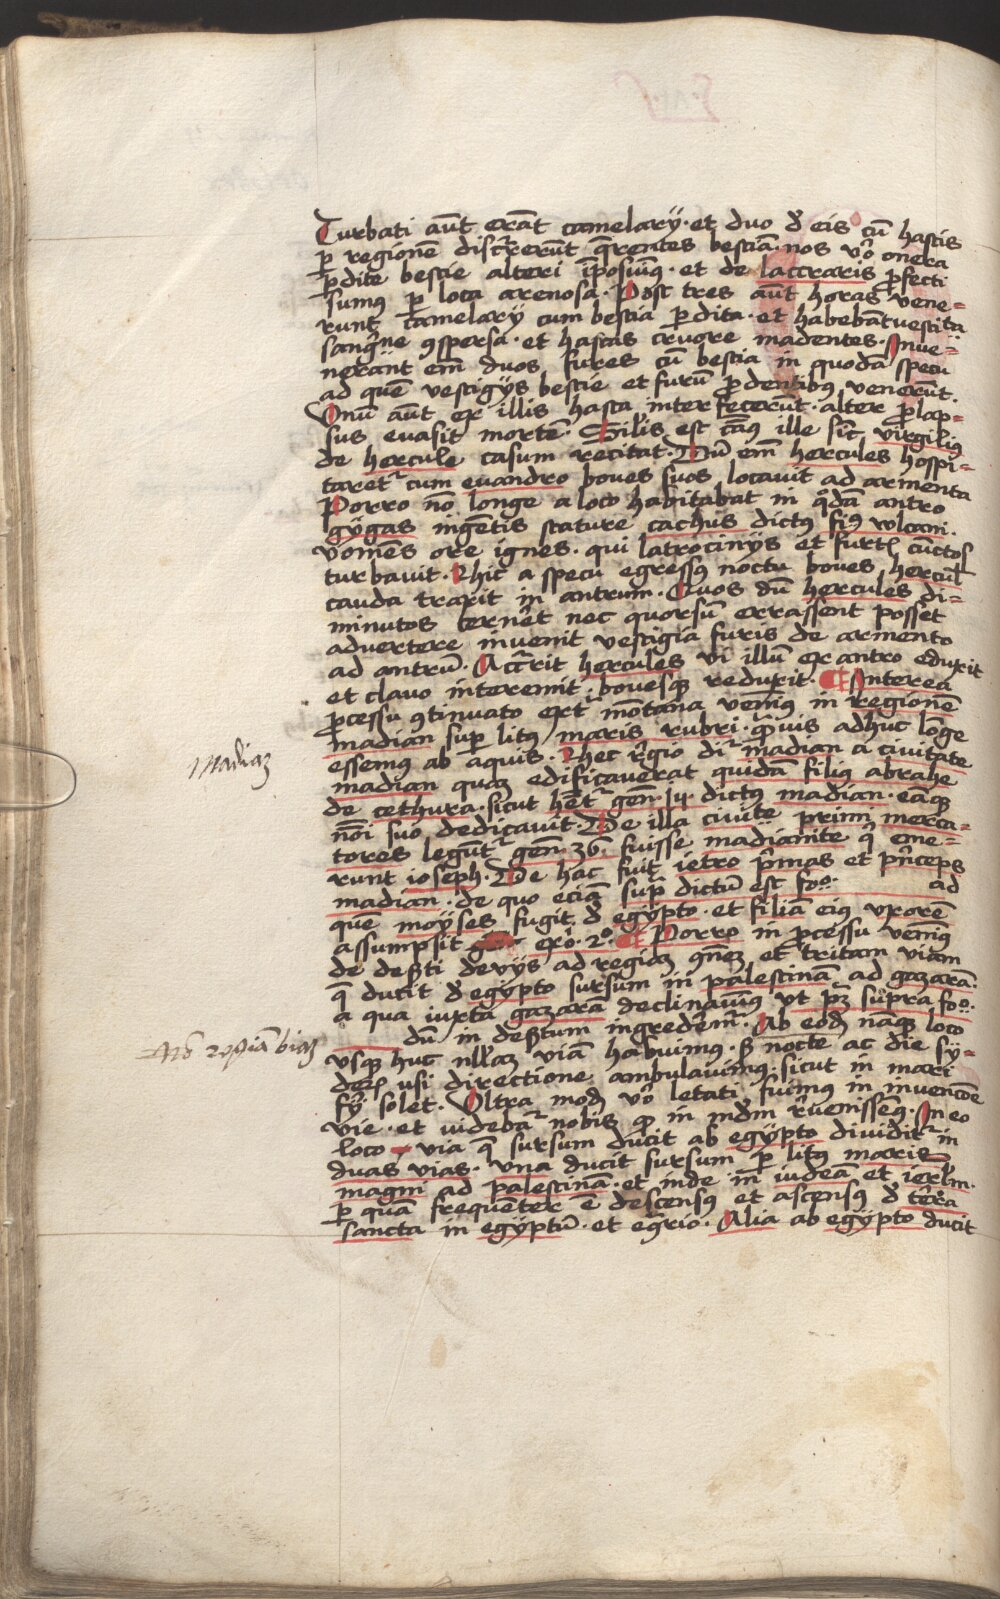 Turbati aūt erāt camelarÿ · et duo d̕ eis cū hastis
ꝑ regionē discr̄rerūt q̄rentes bestiā · nos v̄o onera
ꝑdite bestie alteri īposuimꝰ · et de laccraris ꝓfecti
sumꝰ ꝑ loca arenosa · Post tres aūt horas vene=
runt camelarÿ cum bestia ꝑdita · et habebāt vestita
sangⁱne ꝯspersa · et hastas cruore madentes · Inue=
nerāt em̄ duos fures cū bestia in quodā specu
ad quē vestigÿs bestie et furū ꝓdentibꝰ venerūt ·
Vnū aūt ex illis hasta interfecerūt · alter ꝓlap=
sus euasit mortē · Silis est casꝰ ille sic̄ virgiliꝰ
de hercule casum recitat · Dū em̄ hercules hospi=
taret᷑ cum euandro boues suos locauit ad armenta
Porro nō longe a loco habitabat in qͦdā antro
gÿgas ingētis stature cachus dictꝰ fiꝰ vlcani ·
vomēs ore ignes · qui latrocinÿs et furtꝭ cūctos
turbauit · Hic a specu egressꝰ noctu boues hercul̄
cauda traxit in antrum · Quos dū hercules di=
minutos cerneret nec quorsū errassent posset
aduertere inuenit vestigia furis de armento
ad antrū · Accr̄rit hercules vi illū ex antro eduxit
et clauo interemit · bouesqꝫ reduxit · Interea
ꝓcessu ꝯtinuato ext᷑ mōtana venimꝰ in regionē
madian suꝑ litꝰ maris rubri · qͣuis adhuc lōge
essemꝰ ab aquis · Hec regio di᷑ madian a ciuitate
Madiaꝫ
madian quaꝫ edificauerat quidā filiꝰ abrahe
de cethura · sicut het᷑ gen̄ · dictꝰ madian · eāqꝫ
nōi suo dedicauit · De illa ciuite primi merca=
tores legūt᷑ gen̄ · 36 · fuisse madianite qͥ eme=
runt ioseph · De hac fuit ietro pͥmas et pⁿceps
madian · de quo eciā supͣ dictū est foͦ · ad
quē moÿses fugit d̕ egypto · et filiā eiꝰ vxorē
assumpsit exo · 2º · Porro in ꝓcessu venimꝰ
de deserti deuÿs ad regiaꝫ et tritam viam
q̄ ducit d̕ egypto sursum in palestinā ad gazarā ·
a qua iuxta gazarā declinauimꝰ vt pꝫ supra foͦ ·
dū in desertum ingrederemr̄ · Ab eodē nāqꝫ loco
Nō regiā viaꝫ
vsqꝫ huc nllaꝫ viam habuimꝰ · s̄ nocte ac die sÿ=
derꝭ usi directione ambulauimꝰ · sicut in mari
fÿ solet · Vltra modū v̄o letati fuimꝰ in inuencōe
vie · et videbat᷑ nobis in redūm ꝓuenissemꝰ · In eo
loco via q̄ sursum ducit ab egÿpto diuidit᷑ in
duas vias · vna ducit sursum ꝑ litꝰ maris
magni ad palestinā · et inde in iudeā et ierl̄m ·
ꝑ quā frequēter ē descensꝰ et ascensꝰ d̕ terra
sancta in egÿptū · et eͦgrio · Alia ab egÿpto ducit